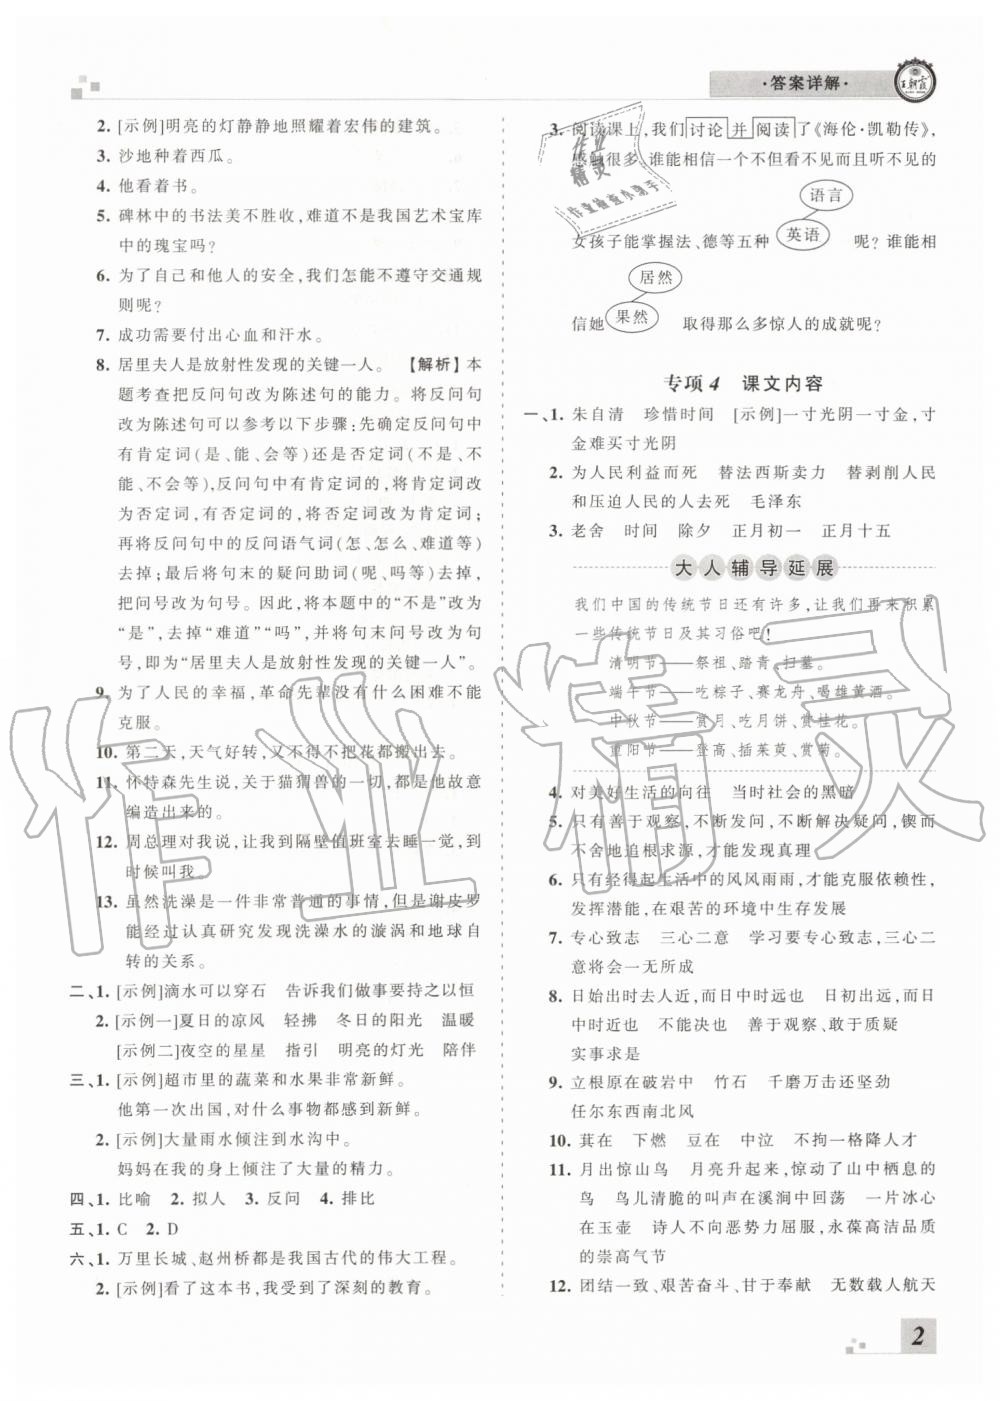 ·答案详解·
王朝霞
2. [示例]明亮的灯静静地照耀着宏伟的建筑。
3. 沙地种着西瓜。
4. 他看着书。
5. 碑林中的书法美不胜收,难道不是我国艺术宝库
中的瑰宝吗?
6. 为了自己和他人的安全,我们怎能不遵守交通规
则呢?
7. 成功需要付出心血和汗水。
8. 居里夫人是放射性发现的关键一人。 【解析】本
题考查把反问句改为陈述句的能力。将反问句
改为陈述句可以参考以下步骤:先确定反问句中
有肯定词(是、能、会等)还是否定词(不是、不
能、不会等),反问句中有肯定词的,将肯定词改
为否定词,有否定词的,将否定词改为肯定词;
再将反问句中的反问语气词(怎、怎么、难道等)
去掉;最后将句末的疑问助词(呢、吗等)去掉,
把问号改为句号。因此,将本题中的“不是”改为
“是”,去掉“难道”“吗”,并将句末问号改为句
号,即为“居里夫人是放射性发现的关键一人”。
9. 为了人民的幸福,革命先辈没有什么困难不能
克服。
10. 第二天,天气好转,又不得不把花都搬出去。
11. 怀特森先生说,关于猫猬兽的一切,都是他故意
编造出来的。
12. 周总理对我说,让我到隔壁值班室去睡一觉,到
时候叫我。
13. 虽然洗澡是一件非常普通的事情,但是谢皮罗
能经过认真研究发现洗澡水的漩涡和地球自
转的关系。
二、1. [示例]滴水可以穿石 告诉我们做事要持之以恒
2. [示例一]夏日的凉风 轻拂 冬日的阳光 温暖
[示例二]夜空的星星 指引 明亮的灯光 陪伴
三、1. [示例]超市里的蔬菜和水果非常新鲜。
他第一次出国,对什么事物都感到新鲜。
2. [示例]大量雨水倾注到水沟中。
妈妈在我的身上倾注了大量的精力。
四、1. 比喻 2. 拟人 3. 反问 4. 排比
五、1. C 2. D
六、1. 万里长城、赵州桥都是我国古代的伟大工程。
2. [示例]看了这本书,我受到了深刻的教育。
3. 阅读课上,我们讨论并阅读了《海伦·凯勒传》,
感触很多。谁能相信一个不但看不见而且听不见的
语言
女孩子能掌握法、德等五种英语 呢?谁能相
居然
信她果然 取得那么多惊人的成就呢?
专项4 课文内容
一、1. 朱自清 珍惜时间 [示例]一寸光阴一寸金,寸
金难买寸光阴
2. 为人民利益而死 替法西斯卖力 替剥削人民
和压迫人民的人去死 毛泽东
3. 老舍 时间 除夕 正月初一 正月十五
大人辅导延展
我们中国的传统节日还有许多,让我们再来积累
一些传统节日及其习俗吧!
清明节——祭祖、踏青、扫墓。
端午节——吃粽子、赛龙舟、喝雄黄酒。
中秋节——赏月、吃月饼、赏桂花。
重阳节——登高、插茱萸、赏菊。
4. 对美好生活的向往 当时社会的黑暗
5. 只有善于观察,不断发问,不断解决疑问,锲而
不舍地追根求源,才能发现真理
6. 只有经得起生活中的风风雨雨,才能克服依赖性,
发挥潜能,在艰苦的环境中生存发展
7. 专心致志 三心二意 学习要专心致志,三心二
意将会一无所成
8. 日始出时去人近,而日中时远也 日初出远,而日
中时近也 不能决也 善于观察、敢于质疑
实事求是
9. 立根原在破岩中 竹石 千磨万击还坚劲
任尔东西南北风
10. 萁在 下燃 豆在 中泣 不拘一格降人才
11. 月出惊山鸟 月亮升起来,惊动了山中栖息的
鸟 鸟儿清脆的叫声在溪涧中回荡 一片冰心
在玉壶 诗人不向恶势力屈服,永葆高洁品质
的崇高气节
12. 团结一致、艰苦奋斗、甘于奉献 无数载人航天
2
作业精灵
作业
精灵
作业检查小助手